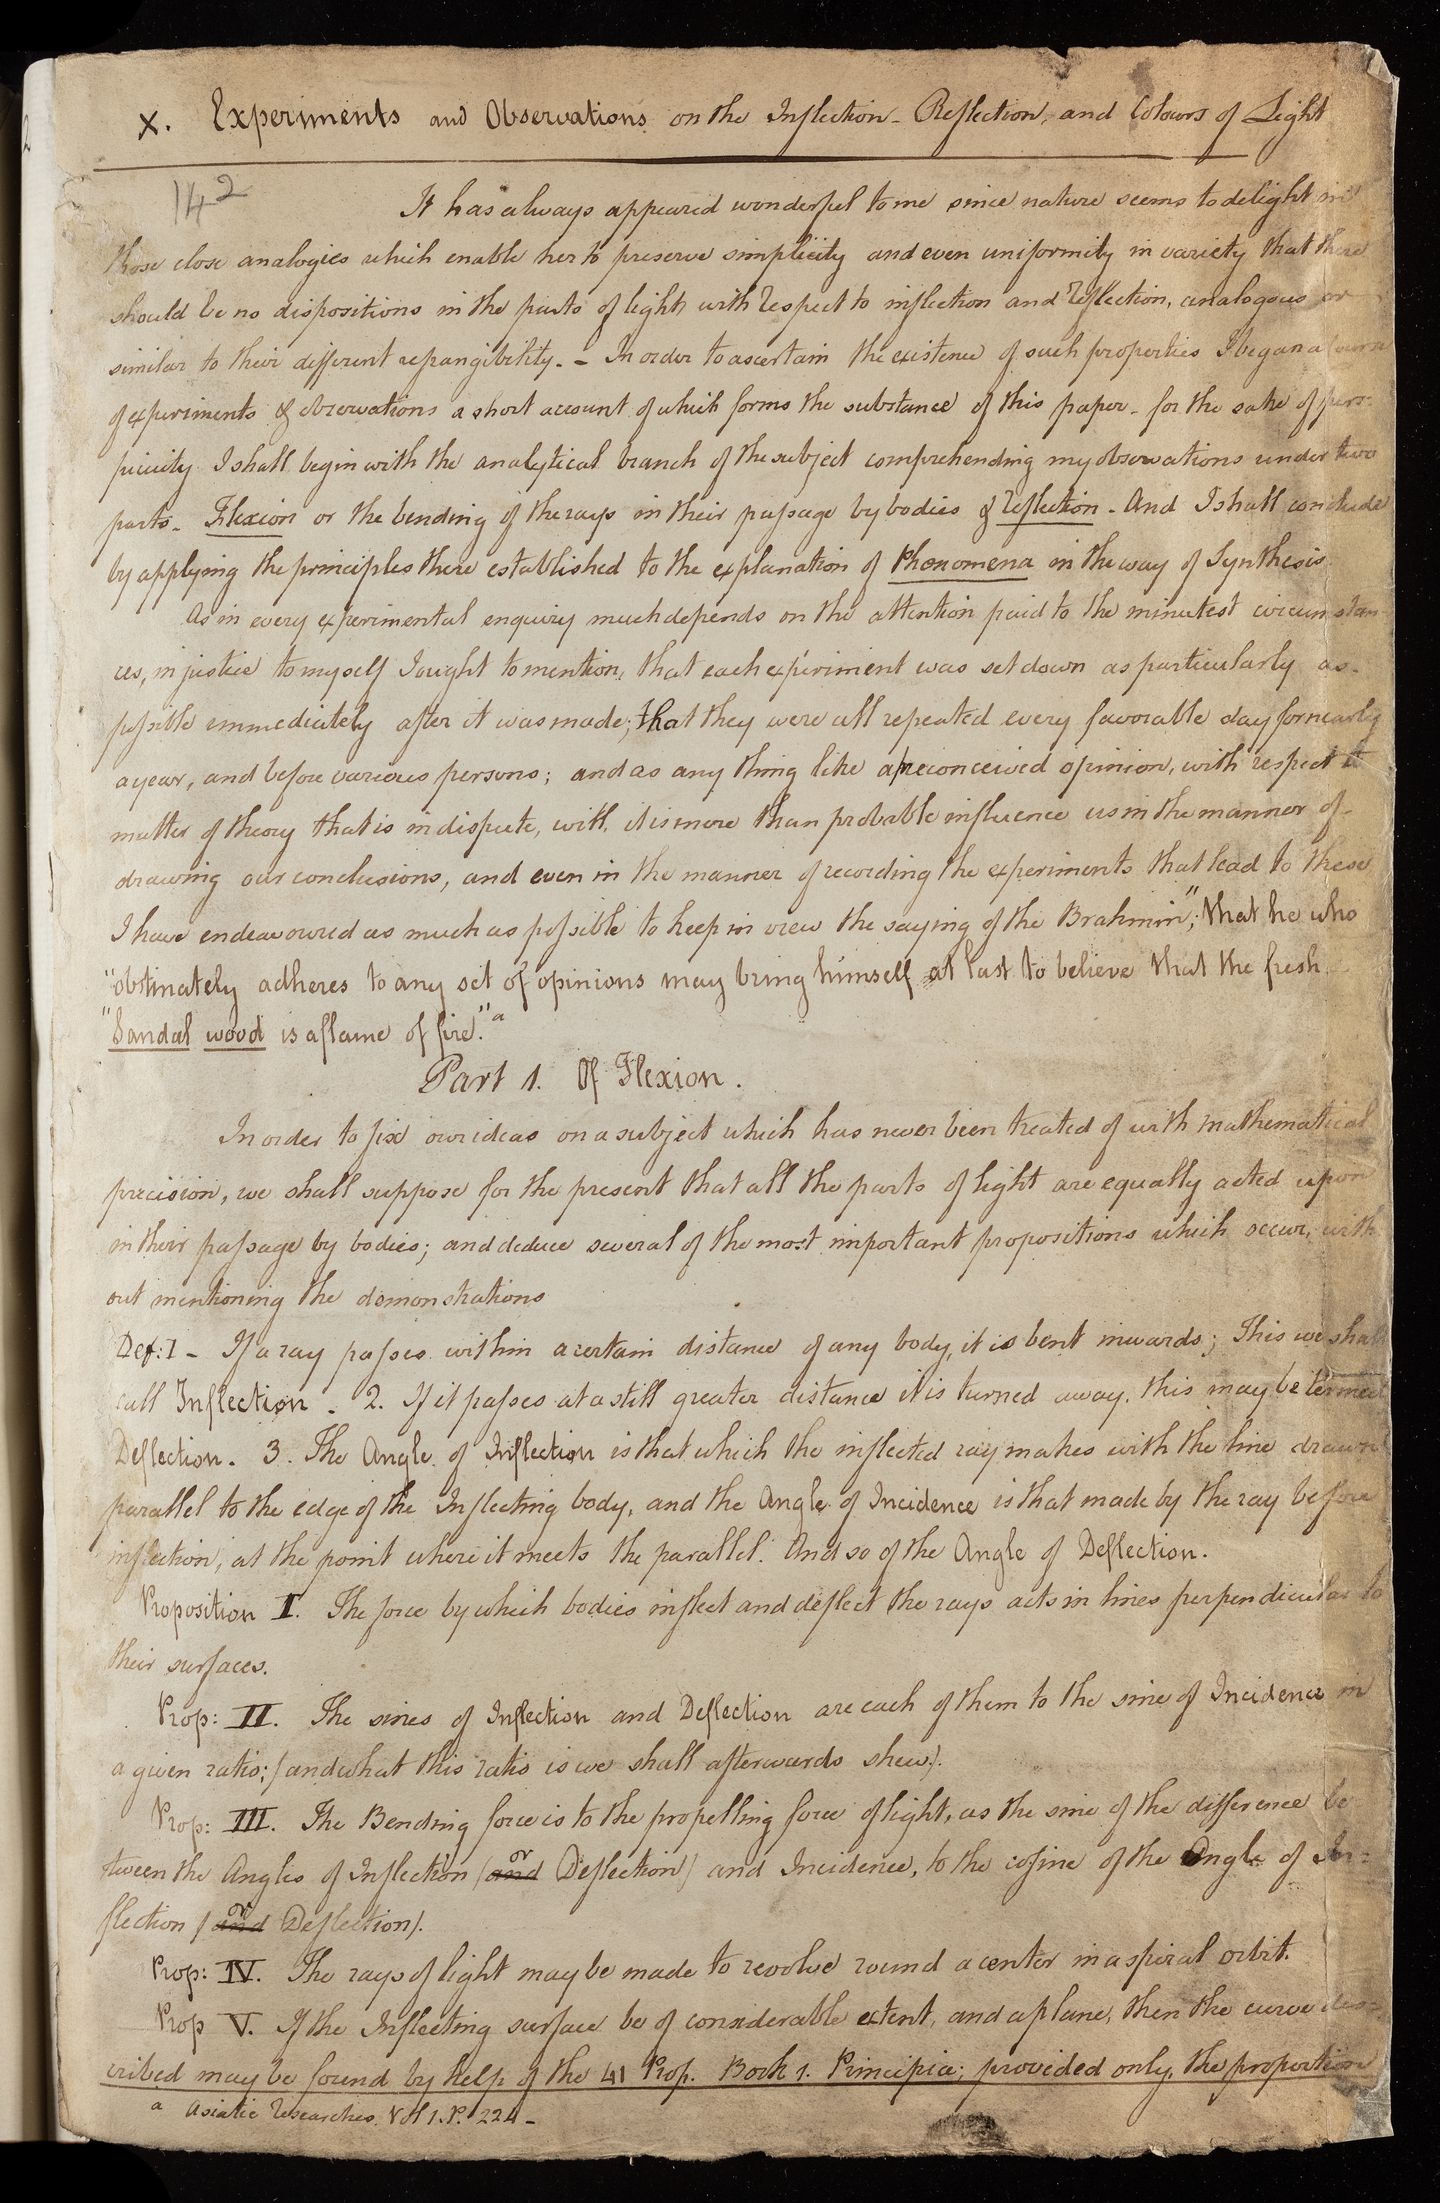 X. Experiments and Observations on the Inflection - Reflection, and Colours of Light
142
It has always appeared wonderful to me since nature seems to delight in
those close analogies which enable her to preserve simplicity and even uniformity in variety that there
should be no dispositions in the parts of light with respect to inflection and reflection, analogous or
similar to their different refrangibility. - In order to ascertain the existence of such properties I began a course
of experiments & observations a short account of which forms the substance of this paper - for the sake of pers-
picuity I shall begin with the analytical branch of the subject comprehending my observations under two
parts - Flexion or the bending of the rays in their passage by bodies & reflection - And I shall conclude
by applying the principles there established to the explanation of Phenomena in the way of Synthesis
As in every experimental enquiry much depends on the attention paid to the minutest circumstan-
ces, in justice to myself I ought to mention, that each experiment was set down as particularly as-
possible immediately after it was made; that they were all repeated every favorable day for nearly
a year, and before various persons; and as any thing like a preconceived opinion, with respect to
matter of theory that is in dispute, will, it is more than probable influence us in the manner of-
drawing our conclusions, and even in the manner of recording the experiments that lead to these
I have endeavoured as much as possible to keep in view the saying of the Brahmin"; that he who
"obstinately adheres to any set of opinions may bring himself at last to believe that the fresh
"Sandal wood is a flame of fire." a
Part 1. Of Flexion.
In order to fix our ideas on a subject which has never been treated of with mathematical
precision, we shall suppose for the present that all the parts of light are equally acted upon
in their passage by bodies; and deduce several of the most important propositions which occur, with
out mentioning the demonstrations
Def: 1 - If a ray passes within a certain distance of any body, it is bent inwards; This we shall
call Inflection. 2. If it passes at a still greater distance it is turned away. this may be termed
Deflection. 3. The Angle of Inflection is that which the inflected ray makes with the line drawn
parallel to the edge of the Inflecting body, and the Angle of Incidence is that made by the ray before
inflection, at the point where it meets the parallel. And so of the Angle of Deflection.
Proposition I. The force by which bodies inflect and deflect the rays acts in lines perpendicular to
their surfaces.
Prop: II. The sines of Inflection and Deflection are each of them to the sine of Incidence in
a given ratio; (and what this ratio is we shall afterwards shew).
Prop: III. The Bending force is to the propelling force of light, as the sine of the difference be
tween the Angles of Inflection (and or Deflection) and Incidence, to the cosine of the Angle of In-
flection (and or Deflection).
Prop: IV. The rays of light may be made to revolve round a center in a spiral orbit.
Prop V. If the Inflecting surface be of considerable extent, and a plane, then the curve des-
cribed may be found by help of the 41 Prop. Book 1. Principia; provided only, the proportion
a Asiatic Researches. Vol 1. P. 224 -